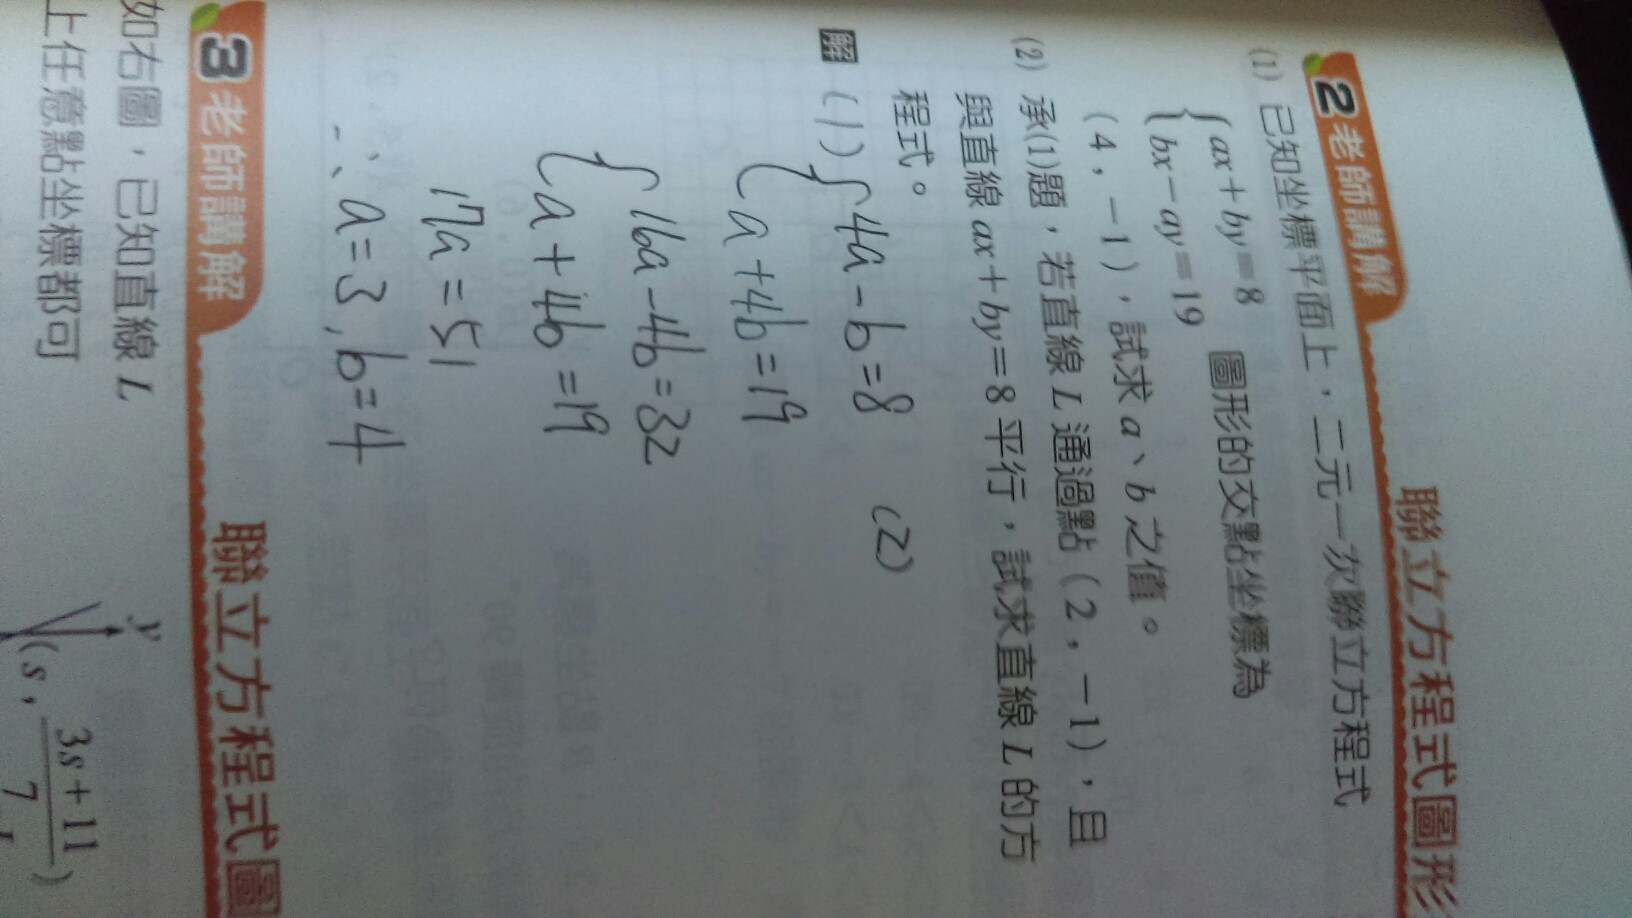 聯立方程式圖形
2 老師講解
(1) 已知坐標平面上，二元一次聯立方程式
{ax＋by＝8
bx－ay＝19 圖形的交點坐標為
(4，－1)，試求 a、b 之值。
(2) 承(1)題，若直線 L 通過點 (2，－1)，且
與直線 ax＋by＝8 平行，試求直線 L 的方
程式。
解 (1) {4a-b=8 (2)
{a+4b=19
{16a-4b=32
a+4b=19
17a=51
∴a=3,b=4
聯立方程式圖
3 老師講解
如右圖，已知直線 L
上任意點坐標都可
y
(s, 3s+11/7)